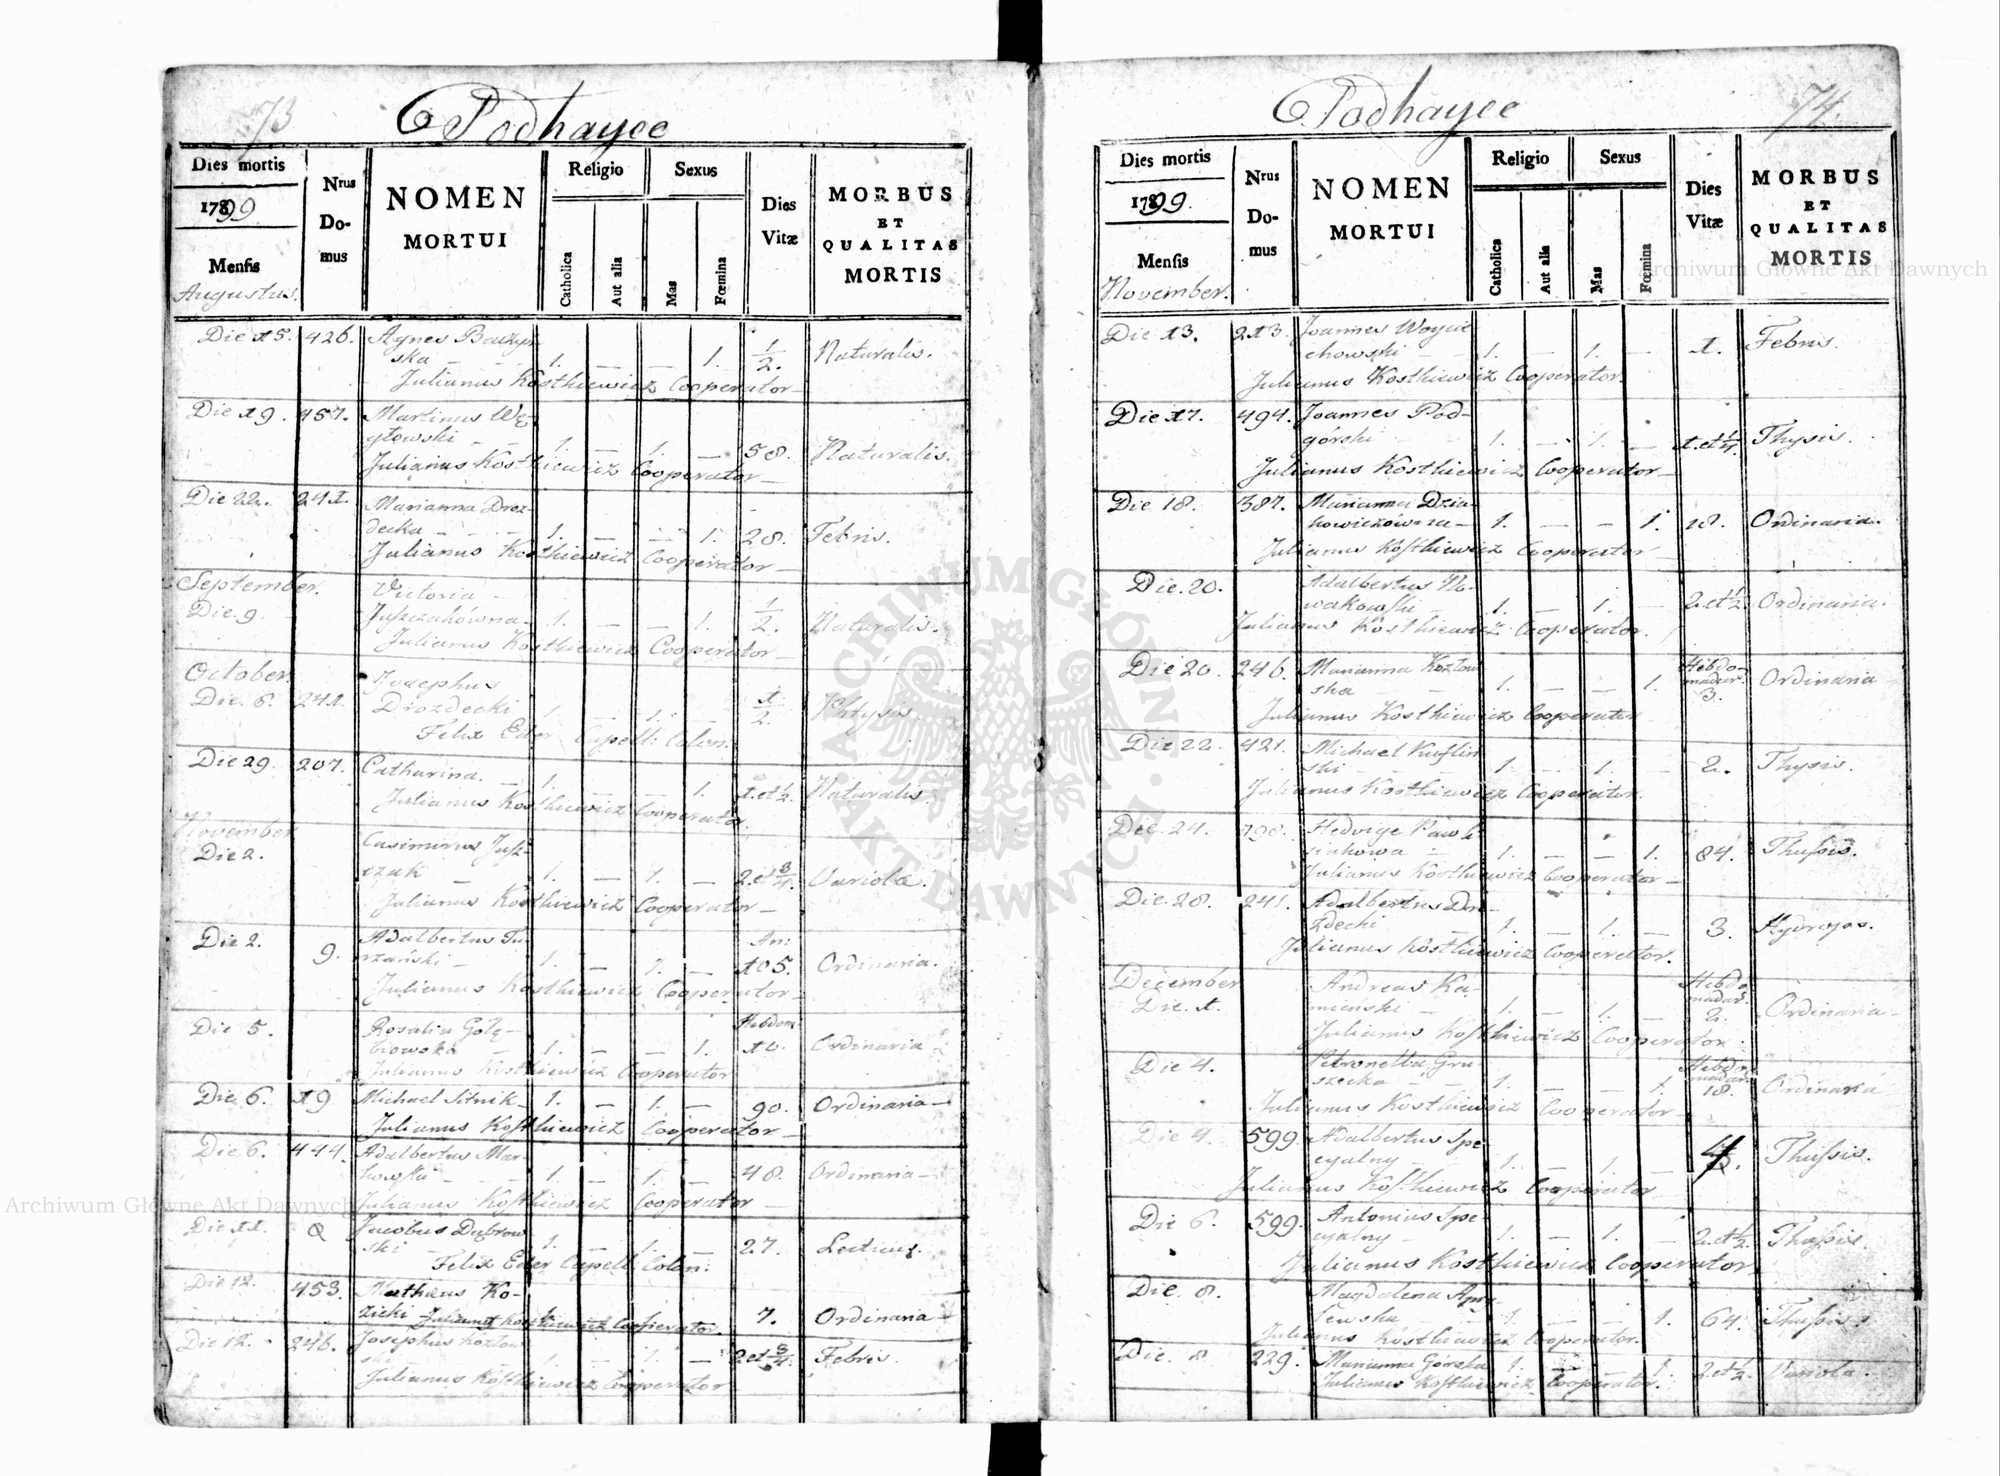 73
Podhayce
Dies mortis
1799
Mensis
Augustus.
Nrus Domus
NOMEN MORTUI
Religio
Catholica
Aut alia
Sexus
Mas
Fœmina
Dies Vitæ
MORBUS ET QUALITAS MORTIS
Die 15. 426. Agnes
ska 1. — — 1. 1/2. Naturalis.
Julianus Kosthiewicz Cooperator
Die 19. 457. Martinus Wę-
głowski 1. — 1. — 58. Naturalis.
Julianus Kosthiewicz Cooperator
Die 22. 241. Marianna Droz-
decka 1. — — 1. 28. Febris.
Julianus Kosthiewicz Cooperator
September. Victoria
Die. 9. Juszczakówna 1. — — 1. 1/2. Naturalis.
Julianus Kosthiewicz Cooperator
October. Josephus
Die. 6. 241. Drozdecki 1. — 1. — 1/2.
Felix Eder Capell: Colon:
Die 29. 207. Catharina. 1. — — 1. 1. et 1/2. Naturalis.
Julianus Kosthiewicz Cooperator
November Casimirus Jusz-
Die 2. czak 1. — 1. — 2. et 3/4. Variola.
Julianus Kosthiewicz Cooperator
Die 2. 9. Adalbertus Tu- An:
rzański 1. — 1. — 105. Ordinaria.
Julianus Kosthiewicz Cooperator
Die 5. Rosalia Gołę- Hebdom:
biowska 1. — — 1. 10. Ordinaria
Julianus Kosthiewicz Cooperator
Die 6. 19 Michael Sitnik 1. — 1. — 90. Ordinaria
Julianus Kosthiewicz Cooperator
Die 6. 444. Adalbertus Mar-
kowski 1. — 1. — 48. Ordinaria
Julianus Kosthiewicz Cooperator
Die 11. Jacobus Dąbrow
ski 1. — 1. — 27.
Felix Eder Capell: Colon:
Die 12. 453. Mathæus Ko-
zicki Julianus Kosthiewicz Cooperator. 7. Ordinaria
Die 12. 246. Josephus Kozłow
ski 1. — 1. — 2 et 3/4. Febris.
Julianus Kosthiewicz Cooperator
74.
Podhayce
Dies mortis
1799.
Mensis
November.
Nrus Domus
NOMEN MORTUI
Religio
Catholica
Aut alia
Sexus
Mas
Fœmina
Dies Vitæ
MORBUS ET QUALITAS MORTIS
Die 13. 213. Joannes Woycie
chowski 1. — 1. — 1. Febris.
Julianus Kosthiewicz Cooperator.
Die 17. 494. Joannes Pod-
górski 1. — 1. — 1. et 1/4. Thysis.
Julianus Kosthiewicz Cooperator
Die 18. 387. Marianna
1. — — 1. 18. Ordinaria.
Julianus Kosthiewicz Cooperator
Die. 20. Adalbertus No-
wakowski 1. — 1. — 2. et 1/2. Ordinaria.
Julianus Kosthiewicz Cooperator.
Die 20. 246. Marianna Kozłow Hebdo-
ska 1. — — 1. madar: 3. Ordinaria
Julianus Kosthiewicz Cooperator
Die 22. 421. Michael
ski 1. — 1. — 2. Thysis.
Julianus Kosthiewicz Cooperator.
Die. 24. Hedvige
1. — — 1. 84. Thussis.
Julianus Kosthiewicz Cooperator
Die. 28. 241. Adalbertus Dro-
zdecki 1. — 1. — 3. Hydrops.
Julianus Kosthiewicz Cooperator.
December Andreas Ka- Hebdo
Die. 1. mieński 1. — 1. — madar: 2. Ordinaria
Julianus Kosthiewicz Cooperator.
Die 4. Petronella Gru Hebdo
szecka 1. — — 1. madar: 18. Ordinaria
Julianus Kosthiewicz Cooperator
Die 4. 599. Adalbertus Spe-
cyalny 1. — 1. — Thussis.
Julianus Kosthiewicz Cooperator
Die 6. 599. Antonius Spe-
cyalny 1. — 1. — 2. et 1/2. Thussis.
Julianus Kosthiewicz Cooperator.
Die. 8. Magdalena
1. — — 1. 64. Thussis.
Julianus Kosthiewicz Cooperator.
Die. 8 229. Marianna Górska 1. — 1. 2. et 1/2. Variola.
Julianus Kosthiewicz Cooperator.
Archiwum Główne Akt Dawnych
Archiwum Główne Akt Dawnych
ARCHIWUM GŁÓWNE AKT DAWNYCH